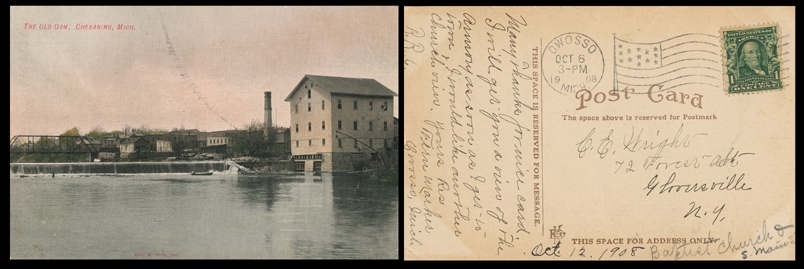 THE OLD DAM, CHESANING, MICH.
Many thanks for nice card
I will get you a view of the
armory as soon as I get in
town. I would like another
church view. Yours Res
Bern Marker
Owosso, Mich.
R.R. 6
THIS SPACE IS RESERVED FOR MESSAGE.
OWOSSO
OCT 6
3-PM
1908
MICH.
Post Card
The space above is reserved for Postmark
C.E. Wright
72 Forest St
Gloversville
N.Y.
THIS SPACE FOR ADDRESS ONLY.
Oct 12, 1908
Baptist Church &
S. Main